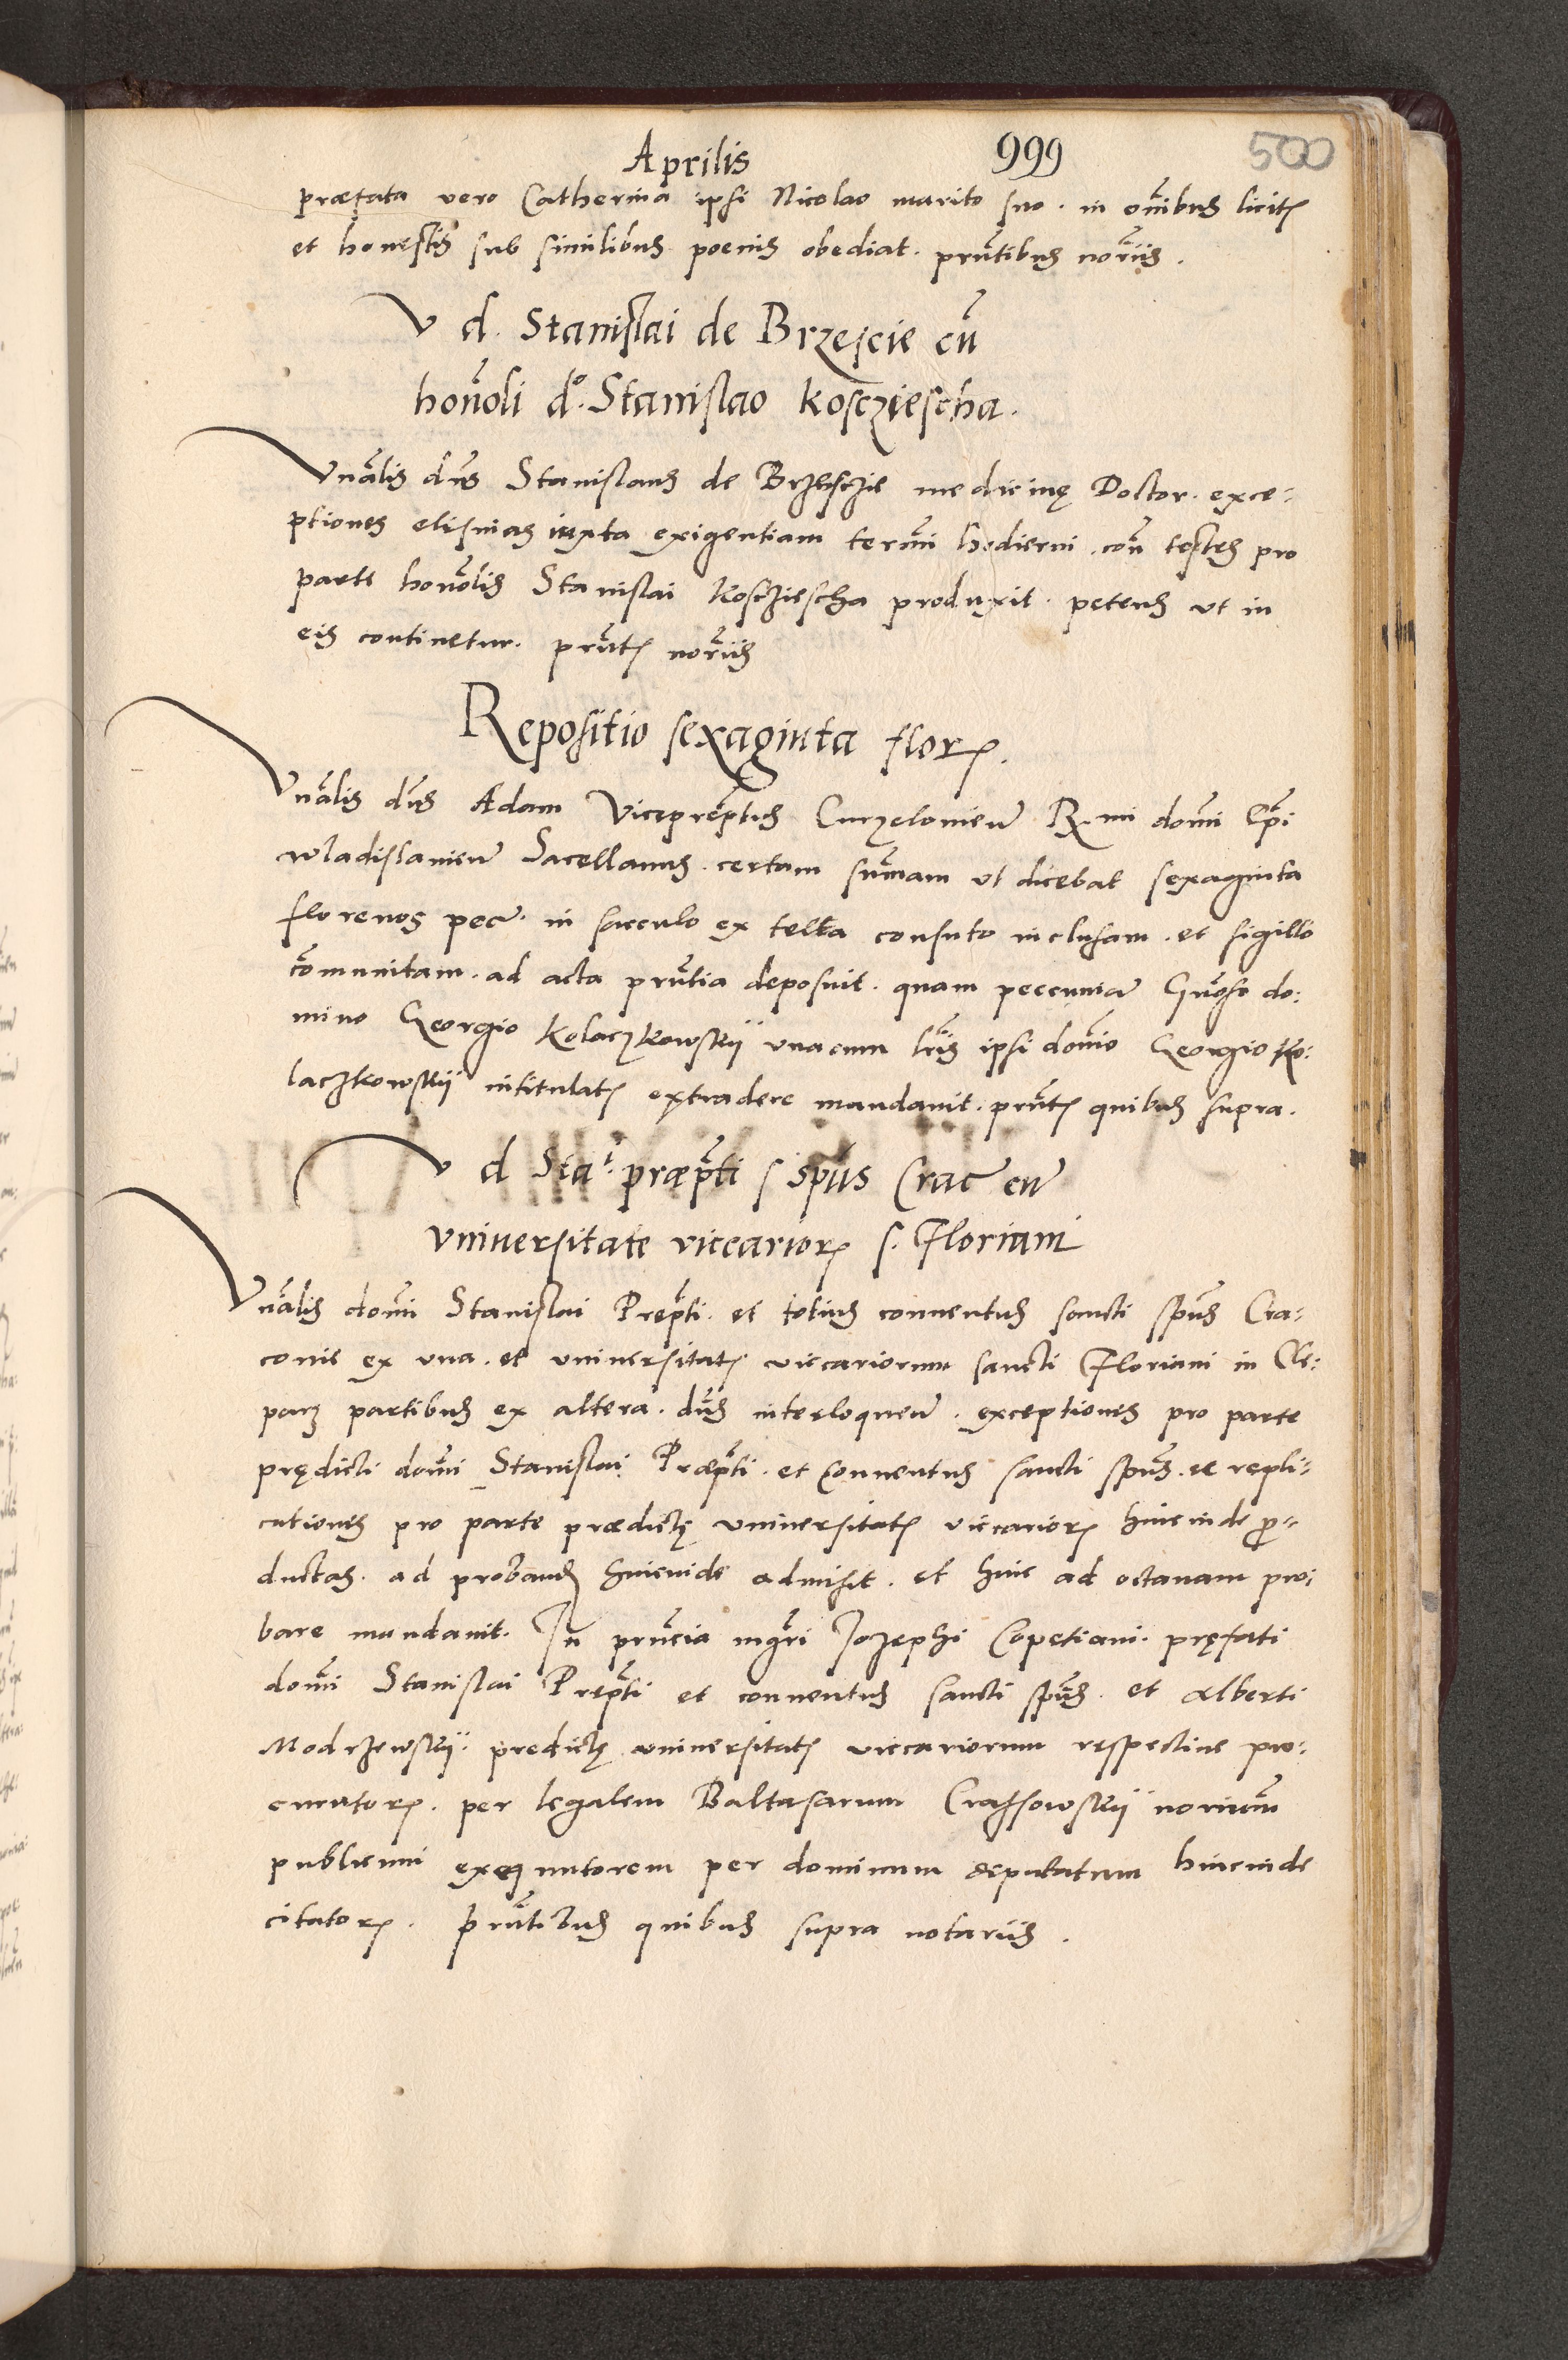 Aprilis 999 500
præfata vero Catherina ipsi Nicolao marito suo . in oñibus licitꝭ
et honestis sub similibus poenis obediat . prñtibus noriis .
V d. Stanislai de Brzescie cũ
honoli d° . Stanislao Koscziescha .
Vnãlis dñs Stanislaus de Brzesczie medicinę Doctor . exce:
ptiones elisivas iuxta exigentiam termi hodierni . con testes pro
parte honolis Stanislai Koscziescha produxit . petens vt in
eis continetur . prñtꝭ noriis
Repositio sexaginta florꝭ .
Vnãlis dñs Adam Viceprẽptus Curzelonieñ R. mi domi Epi
wladislavieñ Sacellanus . certam sum̃am ut dicebat sexaginta
florenos pecũ in sacculo ex tella consuto inclusam . et sigillo
com̃unitam . ad acta prñtia deposuit . quam peccuniã Gnoso do:
mino Georgio Kolaczkowskij vnacum lris ipsi domio Georgio Ko:
laczkowskij intitulatꝭ extradere mandavit . prñtꝭ quibus supra .
V d Sta¹ præpti s spus Crac cũ
vniversitate viccariorꝭ s . Floriani
Vnãlis domi Stanislai Prepti . et totius conventus sancti spus Cra:
covie ex vna . et vniversitatꝭ viccariorum sancti Floriani in Cle:
parz partibus ex altera . dñs interloqueñ . exceptiones pro parte
prędicti domi Stanislai Præpti . et Conventus sancti spus . et repli:
cationes pro parte prædictę vniversitatꝭ viccariorꝭ hincinde ꝓ:
ductas . ad probanđ hincinde admisit . et hinc ad octavam pro:
bare mandavit . In prñcia mgri Jozephi Copetiani . pręfati
domi Stanislai Prepti et conventus sancti spus . et Alberti
Modrzewskij . predictę vniversitatꝭ viccariorum respective pro:
curatorꝭ . per legalem Baltasarum Crassowskij norium
publicum exequutorem per dominum deputatum hincinde
citatorꝭ . Prñtibus quibus supra notariis .